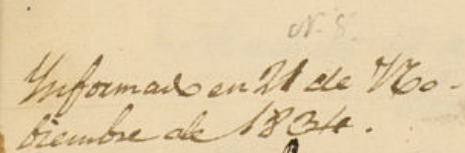 N. 8.
Informado en 21 de No-
biembre de 1834.